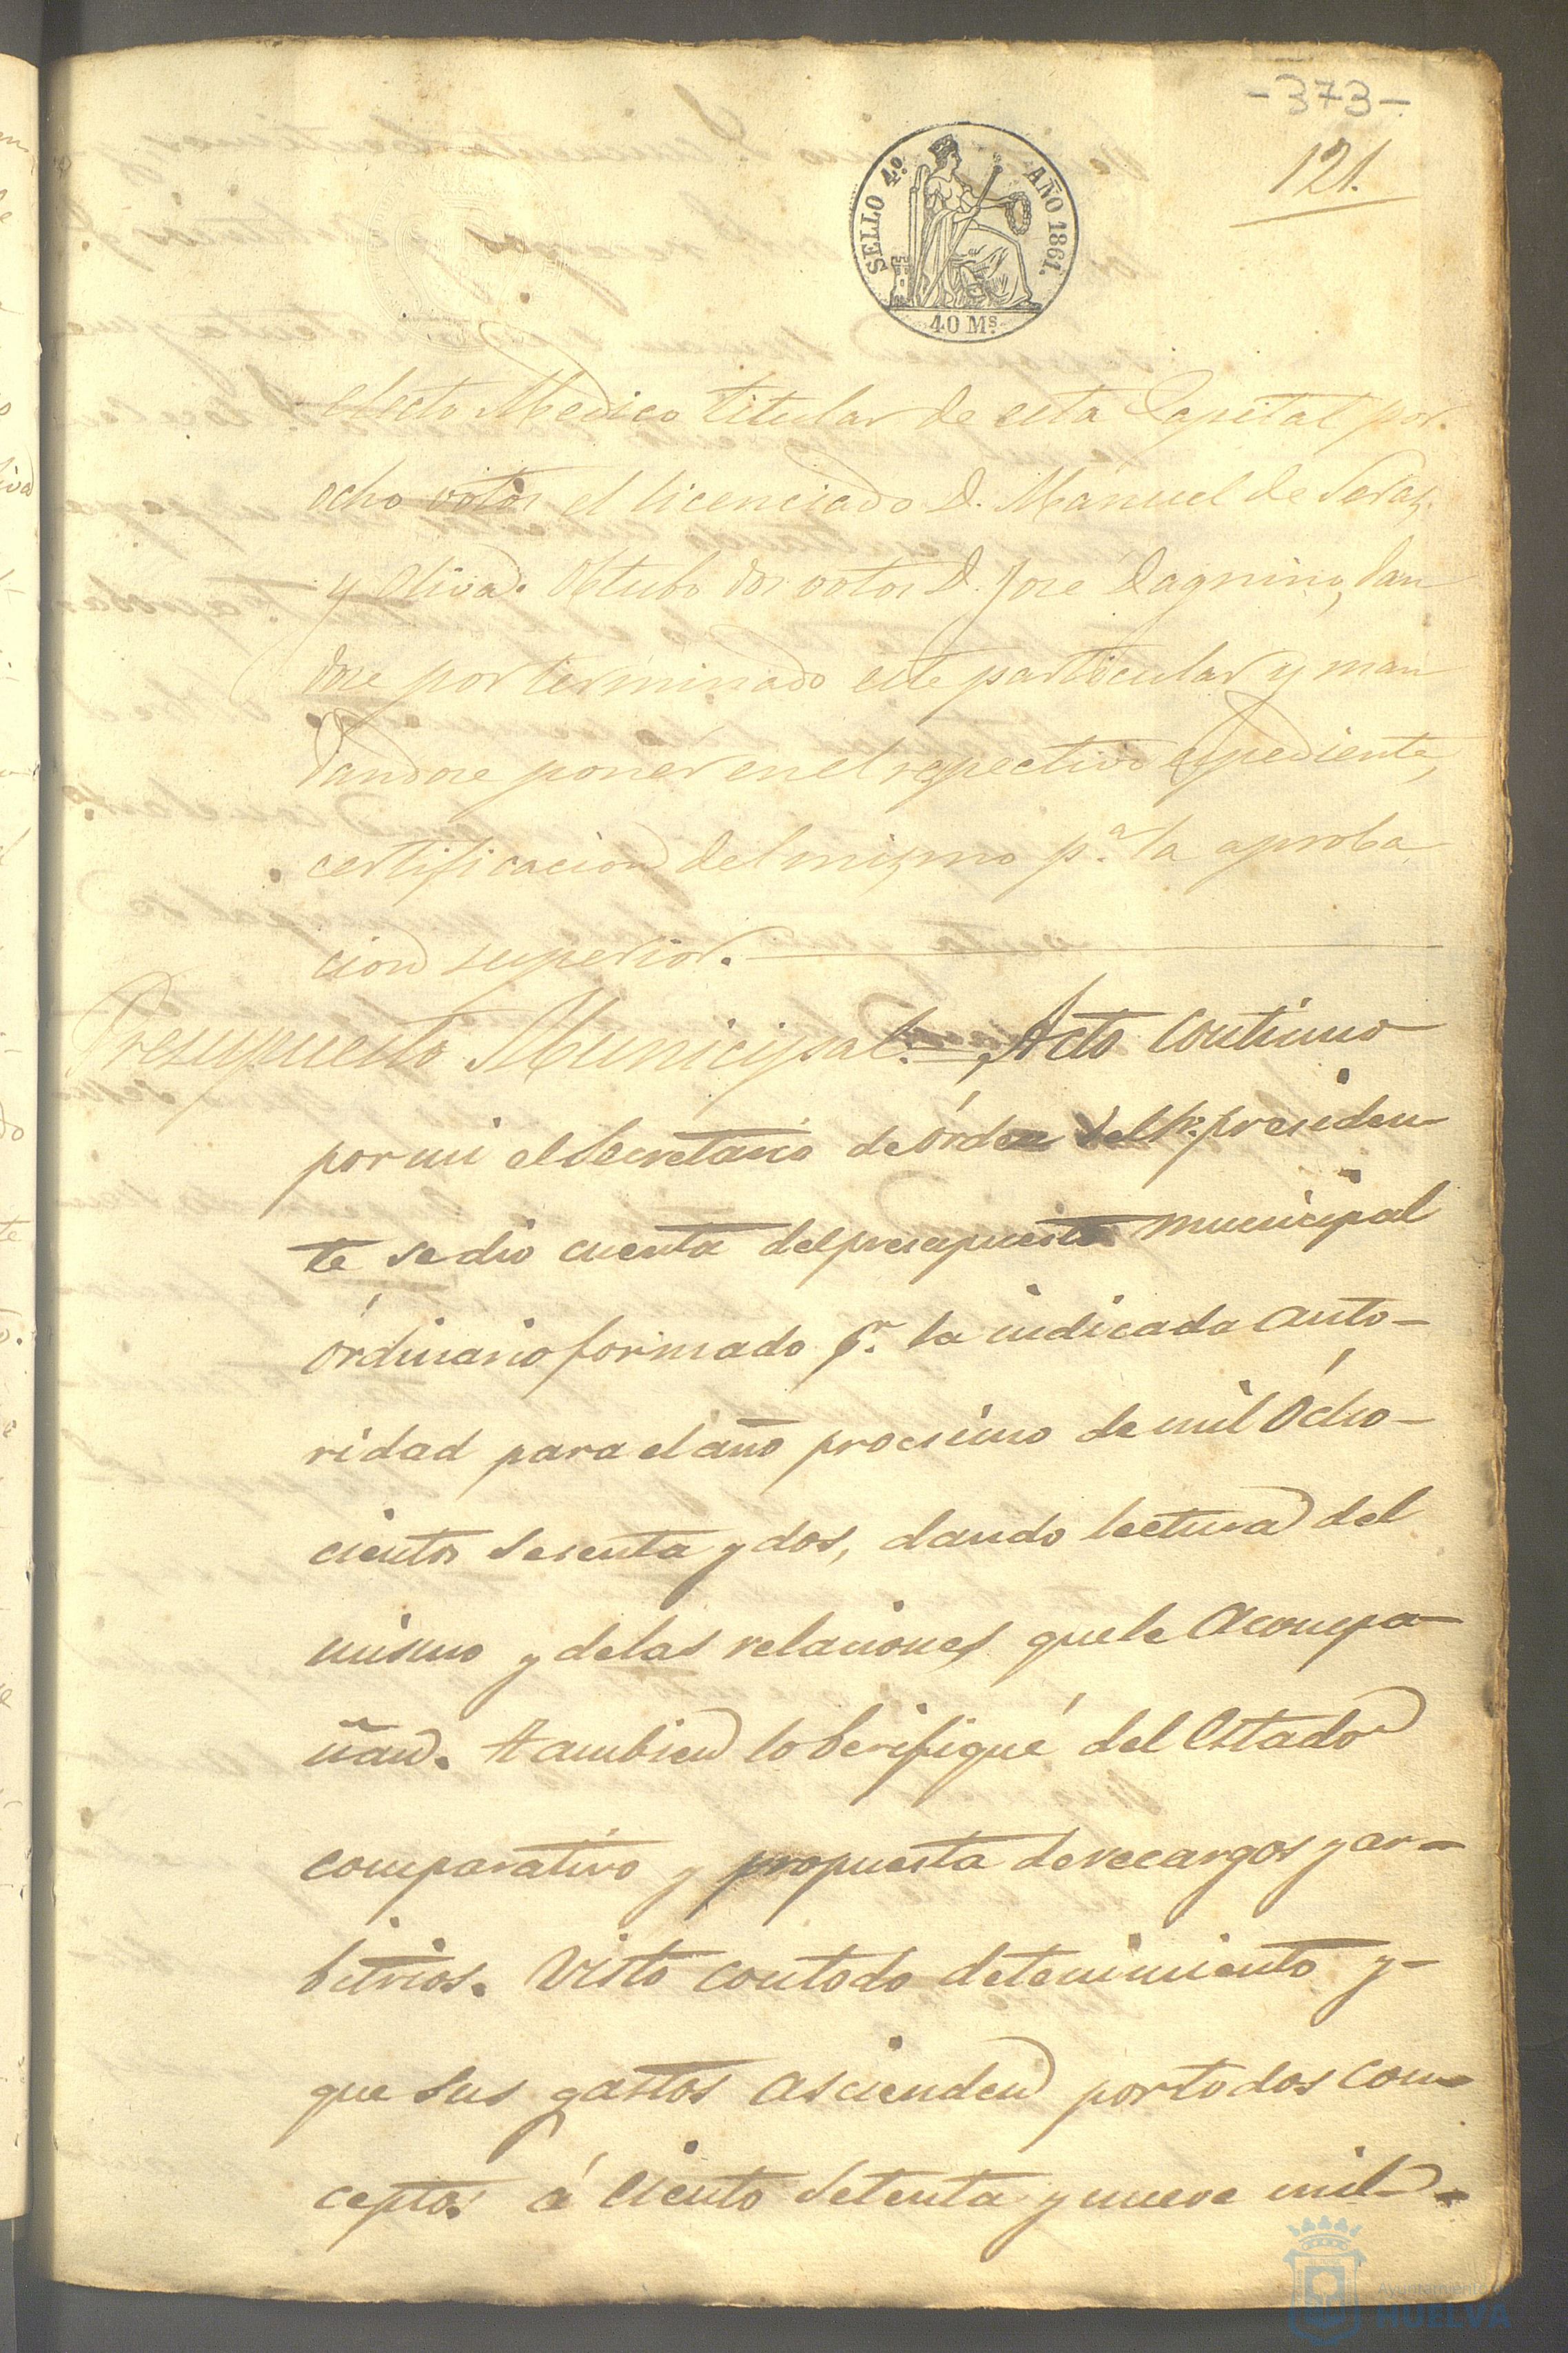 -373-
121.
SELLO 4º. AÑO 1861.
40 Ms.
electo Medico titular de esta Capital por
ocho votos el licenciado D. Manuel de Seras
y Oliva. Obtubo dos votos D. José Dagnino, dan
dose por terminado este particular y man
dandose poner en el respectivo espediente,
certificacion del mismo pª. la aproba
cion superior.
Presupuesto Municipal. Acto continuo
por mi el Secretario de órden del Sr. presiden-
te se dio cuenta del presupuesto municipal
órdinario formado pr. la indicada auto-
ridad para el año procsimo de mil ócho-
cientos sesenta y dos, dando lectura del
mismo y de las relaciones que le acompa-
ñan. Tambien lo berifiqué del Estado
comparativo y propuesta de recargos y ar-
bitrios. Visto con todo detenimiento y-
que sus gastos ascienden por todos con-
ceptos á ciento setenta y nueve mil-
Ayuntamiento
HUELVA